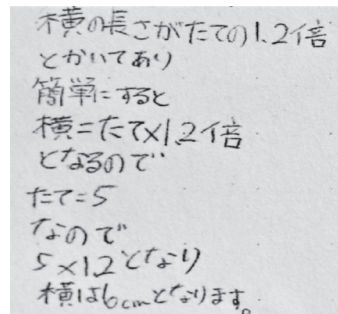 横の長さがたての1.2倍
とかいてあり
簡単にすると
横=たて×1.2倍
となるので
たて=5
なので
5×1.2となり
横は6cmとなります。